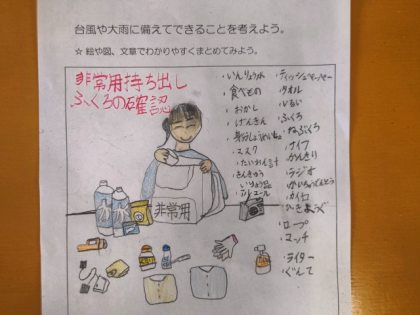 台風や大雨に備えてできることを考えよう。
☆ 絵や図、文章でわかりやすくまとめてみよう。
非常用持ち出し
ふくろの確認
・いんりょう水
・食べもの
・おかし
・げんきん
・マスク
・たいおんけい
・きんきゅう
・アルコール
・ティッシュペーパー
・タオル
・ふくろ
・ねぶくろ
・ナイフ
・かんきり
・ラジオ
・かいちゅうでんとう
・カイロ
・ひっきようぐ
・ロープ
・マッチ
・ライター
・ぐんて
非常用